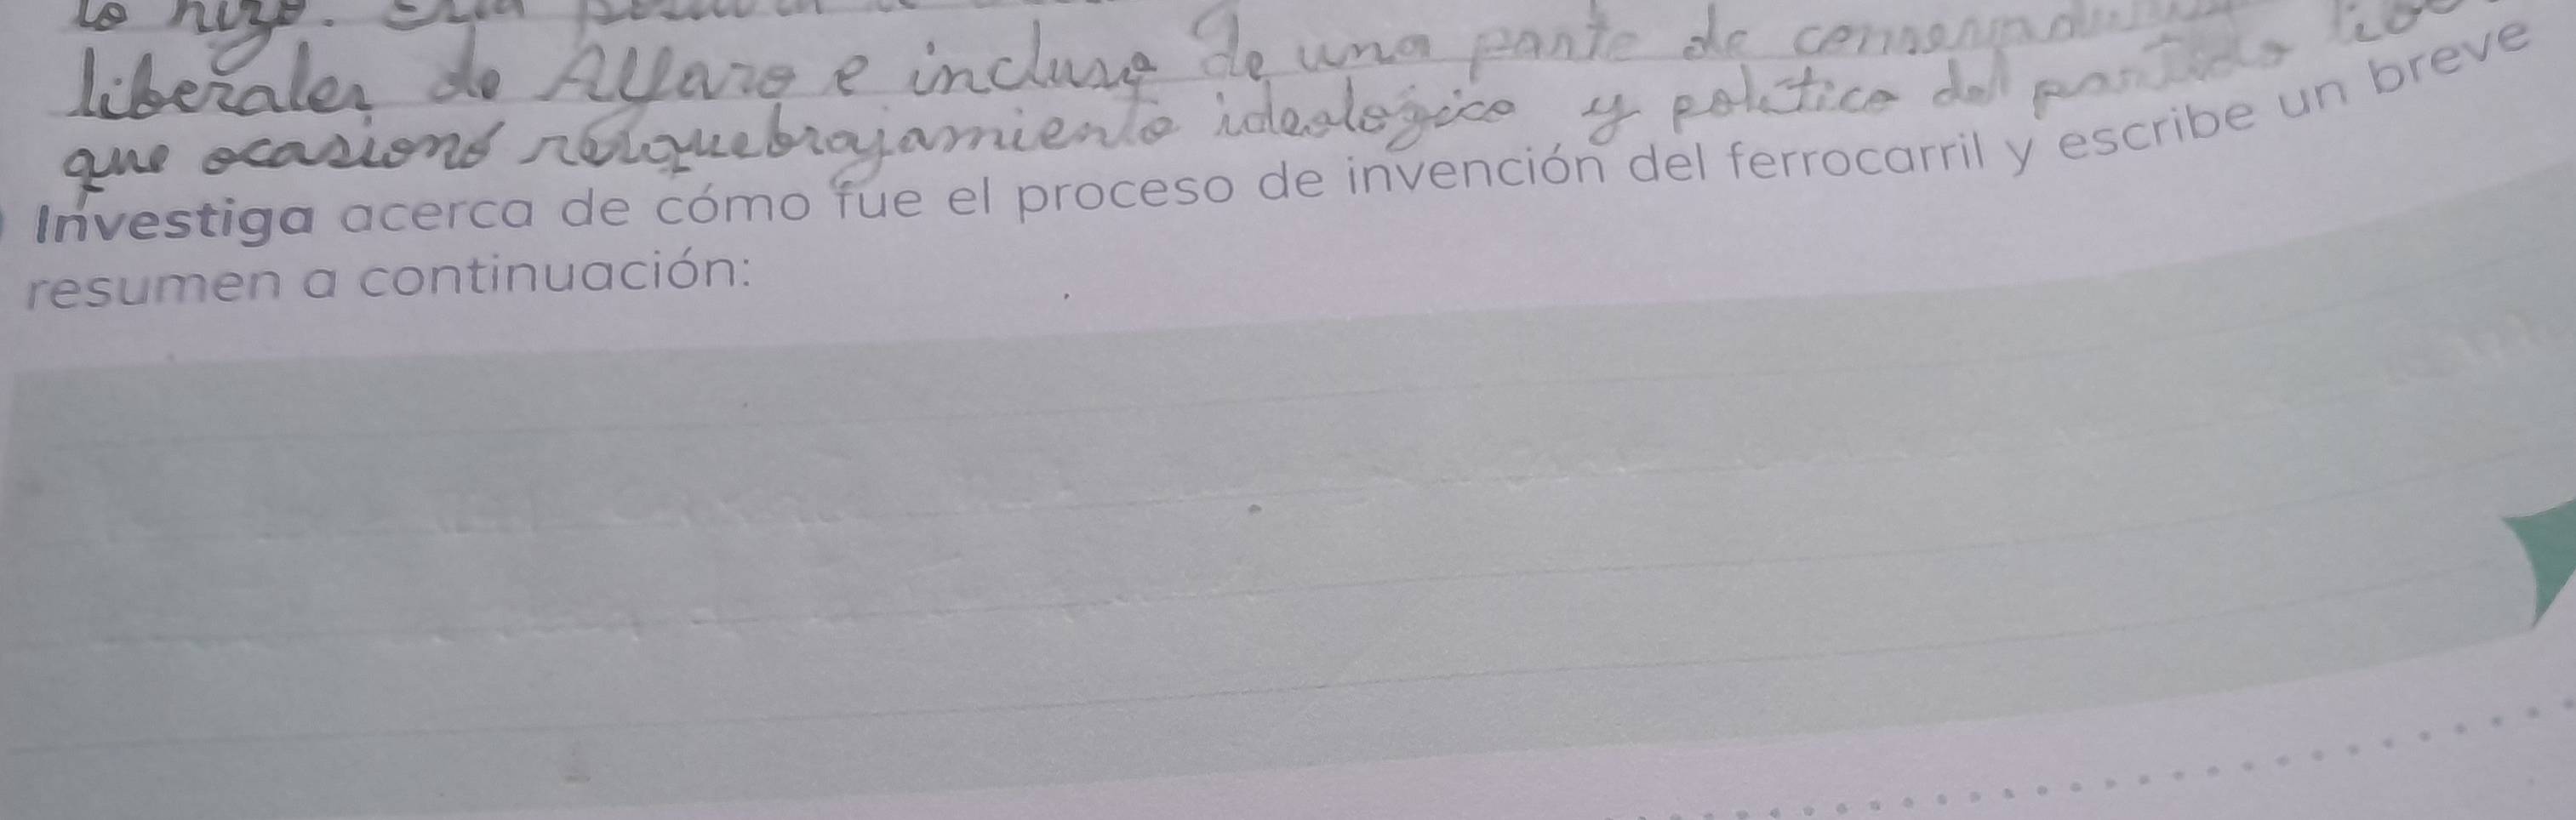 lo hizo.
liberales de Alfaro e incluso de una parte de
que ocasionó resquebrajamiento ideologico y politico del partido
Investiga acerca de cómo fue el proceso de invención del ferrocarril y escribe un breve
resumen a continuación: